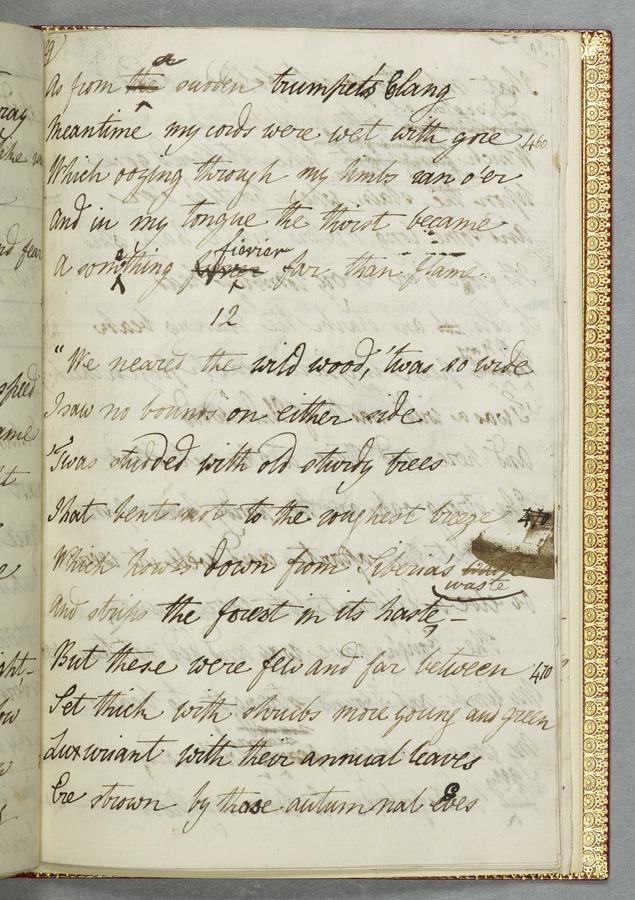 a
As from the sudden trumpet's Clang
Meantime my cords were wet with gore 460
Which oozing through my limbs ran o'er
And in my tongue the thirst became
fierier
A something far than flame.
12
"We neared the wild wood, 'twas so wide
I saw no bounds on either side
'Twas studded with old sturdy trees
That bent not to the roughest breeze 470
Which howls down from Siberia's
waste
And strips the forest in its haste –
But these were few and far between 470
Set thick with shrubs more young and green
Luxuriant with their annual leaves
Ere strown by those autumnal Eves